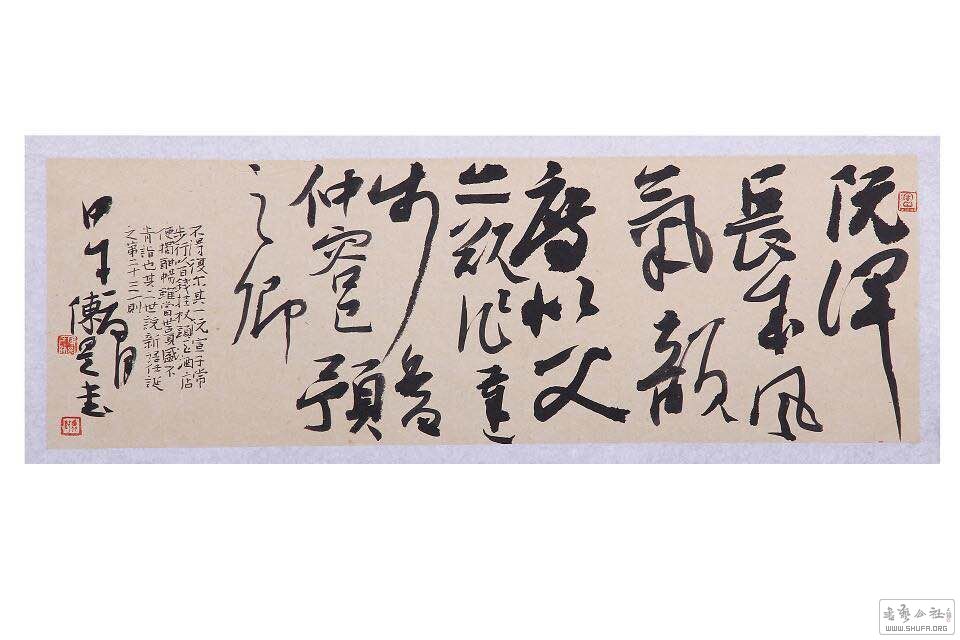 阮渾
長成風
氣韻
度似父
亦欲作達
步
仲容已預
之卿
不得復尓其一阮宣子常
步行以百錢挂杖頭至酒店
便獨酣暢雖當世貴盛不
肯詣也其二世説新語任誕
之第二十三則
甲午月
WWW.SHUFA.ORG